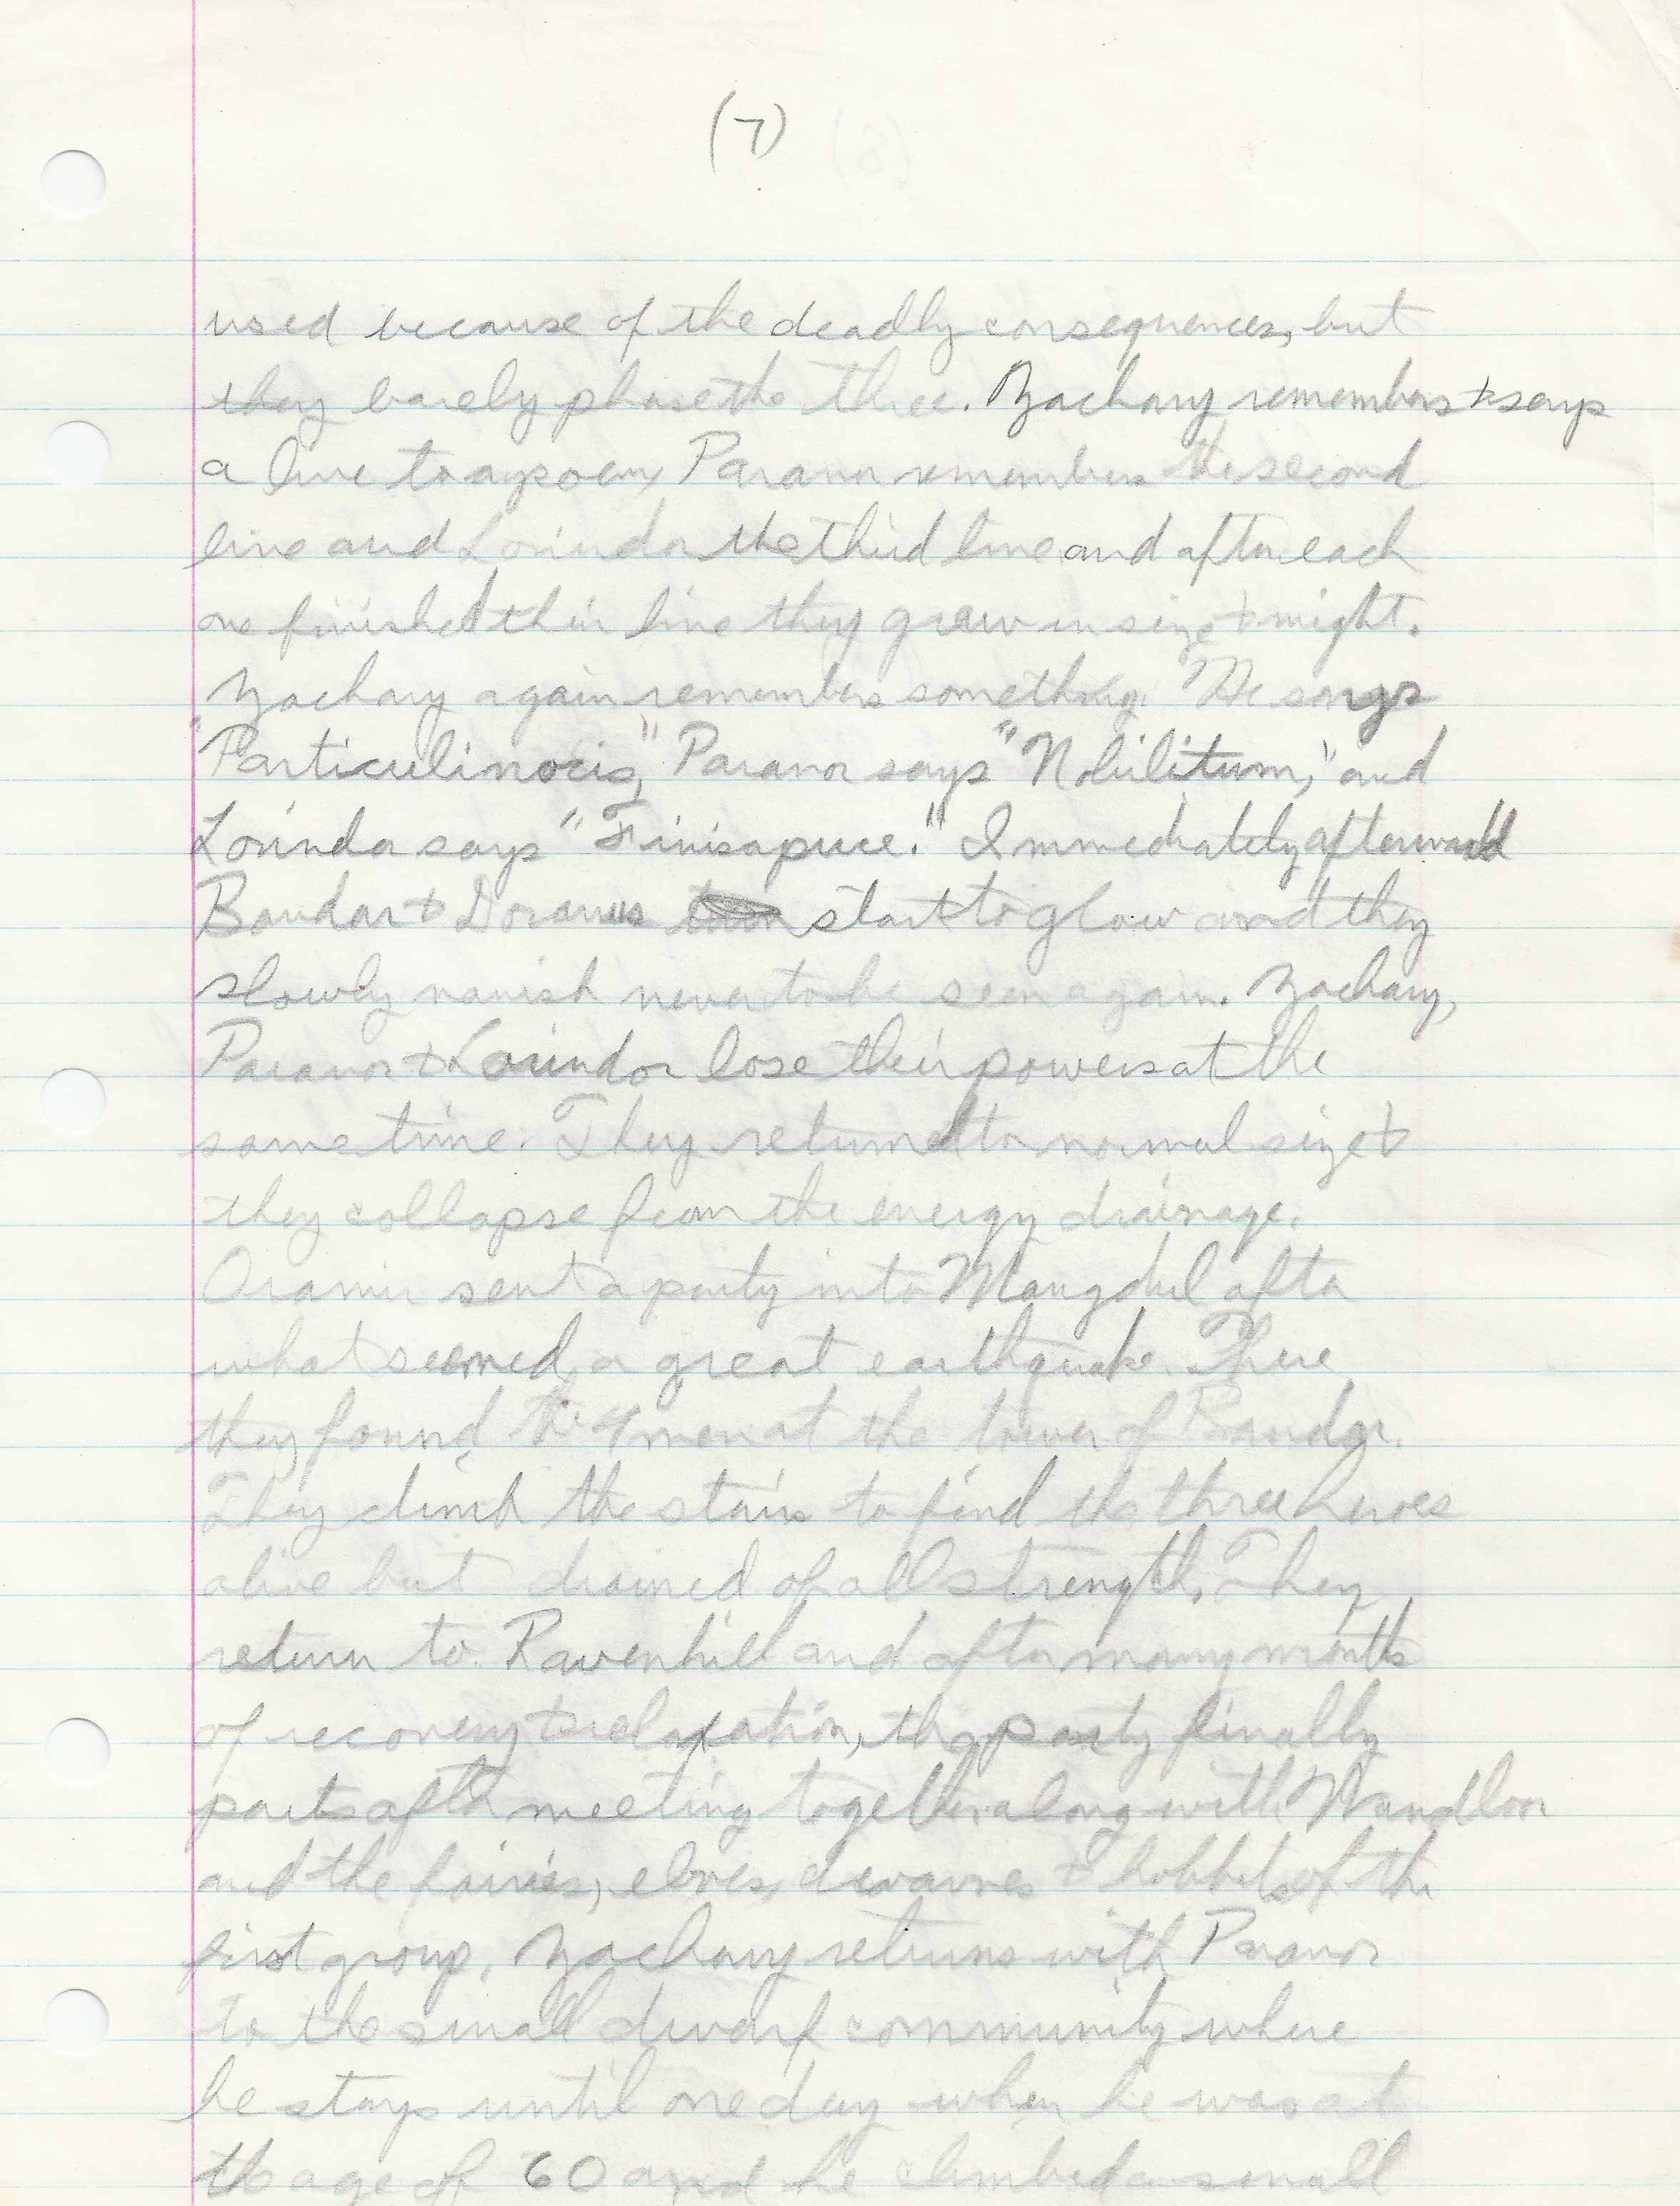 (7)
used because of the deadly consequences, but
they barely phase the three. Zachary remembers & says
a line to a poem, Paranor remembers the second
line and Lorindor the third line and after each
one finished their line they grew in size & might.
Zachary again remembers something. He says
"Particulinocis," Paranor says "Nobilitum," and
Lorindor says "Finisapuce." Immediately afterward
Bandar & Doramus start to glow and they
slowly vanish never to be seen again. Zachary,
Paranor & Lorindor lose their powers at the
same time. They returned to normal size &
they collapse from the energy drainage.
Oramir sent a party into Mangdul after
what seemed a great earthquake. There
they found the 4 men at the tower of Bandar.
They climb the stairs to find the three heroes
alive but drained of all strength. They
return to Ravenhill and after many months
of recovery & relaxation, the party finally
parts after meeting together along with Wandloor
and the fairies, elves, dwarves & hobbits of the
first group. Zachary returns with Paranor
to the small dwarf community where
he stays until one day when he was at
the age of 60 and he climbed a small